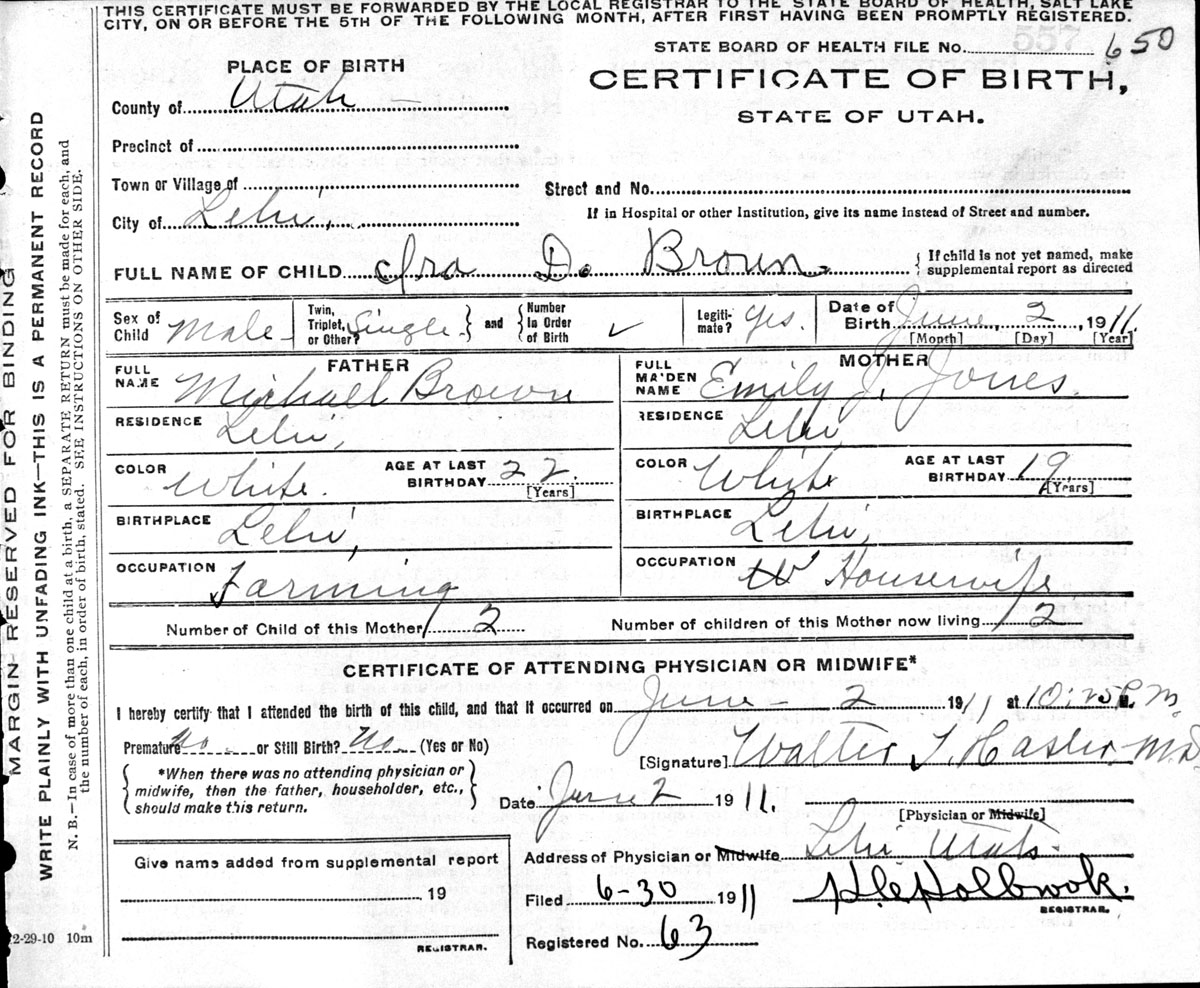 THIS CERTIFICATE MUST BE FORWARDED BY THE LOCAL REGISTRAR TO THE STATE BOARD OF HEALTH, SALT LAKE
CITY, ON OR BEFORE THE 5TH OF THE FOLLOWING MONTH, AFTER FIRST HAVING BEEN PROMPTLY REGISTERED.
STATE BOARD OF HEALTH FILE No. 650
PLACE OF BIRTH
CERTIFICATE OF BIRTH,
STATE OF UTAH.
County of Utah
Precinct of
Town or Village of
Street and No.
City of Lehi,
If in Hospital or other Institution, give its name instead of Street and number.
FULL NAME OF CHILD Ira D. Brown
{ If child is not yet named, make
supplemental report as directed
Sex of Child Male
Twin, Triplet, or Other? Single } and { Number In Order of Birth ✓
Legiti-mate? Yes.
Date of Birth June, 2, 1911.
[Month] [Day] [Year]
FATHER
FULL NAME Michael Brown
MOTHER
FULL MAIDEN NAME Emily J. Jones.
RESIDENCE Lehi,
RESIDENCE Lehi,
COLOR White. AGE AT LAST BIRTHDAY 22. [Years]
COLOR White AGE AT LAST BIRTHDAY 19 [Years]
BIRTHPLACE Lehi,
BIRTHPLACE Lehi,
OCCUPATION Farming
OCCUPATION Housewife
Number of Child of this Mother 2
Number of children of this Mother now living 2
CERTIFICATE OF ATTENDING PHYSICIAN OR MIDWIFE*
I hereby certify that I attended the birth of this child, and that it occurred on June - 2 1911 at M.
Premature No. or Still Birth? No. (Yes or No)
[Signature] Walter T. Hasler, M.D.
{ *When there was no attending physician or
midwife, then the father, householder, etc.,
should make this return. }
Date June 2 1911.
[Physician or Midwife]
Address of Physician or Midwife Lehi Utah.
Give name added from supplemental report
19
REGISTRAR.
Filed 6-30 1911
REGISTRAR.
Registered No. 63
2-29-10 10m
MARGIN RESERVED FOR BINDING
WRITE PLAINLY WITH UNFADING INK—THIS IS A PERMANENT RECORD
N. B.—In case of more than one child at a birth, a SEPARATE RETURN must be made for each, and
the number of each, in order of birth, stated. SEE INSTRUCTIONS ON OTHER SIDE.